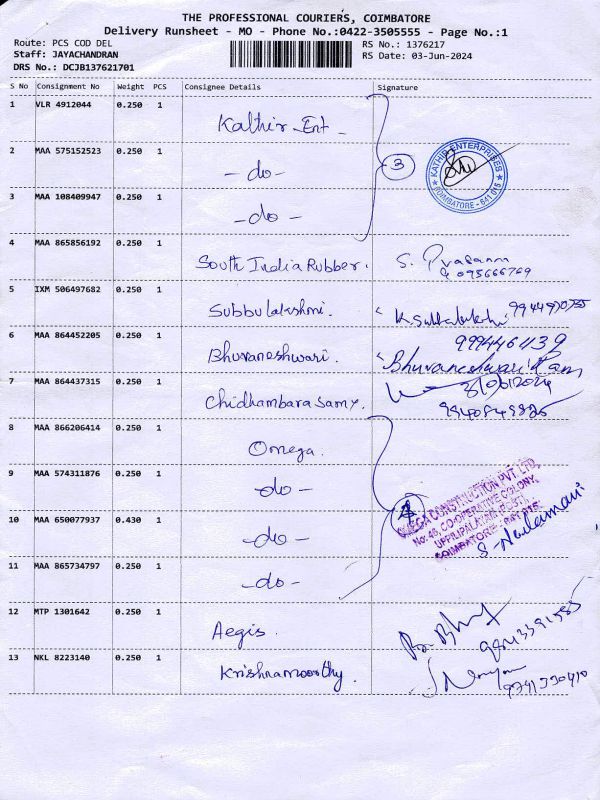 THE PROFESSIONAL COURIERS, COIMBATORE
Delivery Runsheet - MO - Phone No.:0422-3505555 - Page No.:1
Route: PCS COD DEL RS No.: 1376217
Staff: JAYACHANDRAN RS Date: 03-Jun-2024
DRS No.: DCJB137621701
S No Consignment No Weight PCS Consignee Details Signature
1 VLR 4912044 0.250 1 Kathir Ent -
2 MAA 575152523 0.250 1 - do - 3 KATHIR ENTERPRISES COIMBATORE - 641 015
3 MAA 108409947 0.250 1 - do -
4 MAA 865856192 0.250 1 South India Rubber. S. Prasann
5 IXM 506497682 0.250 1 Subbulakshmi.
6 MAA 864452205 0.250 1 Bhuvaneshwari. Bhuvaneshwari Ram
7 MAA 864437315 0.250 1 Chidhambarasamy. 3/06/2024
8 MAA 866206414 0.250 1 Omega.
9 MAA 574311876 0.250 1 - do - 4
10 MAA 650077937 0.430 1 - do -
OMEGA CONSTRUCTION PVT LTD,
No: 48, CO-OPERATIVE COLONY,
UPPILIPALAYAM (POST),
COIMBATORE - 641 015.
11 MAA 865734797 0.250 1 - do -
12 MTP 1301642 0.250 1 Aegis.
13 NKL 8223140 0.250 1 Krishnamoorthy.